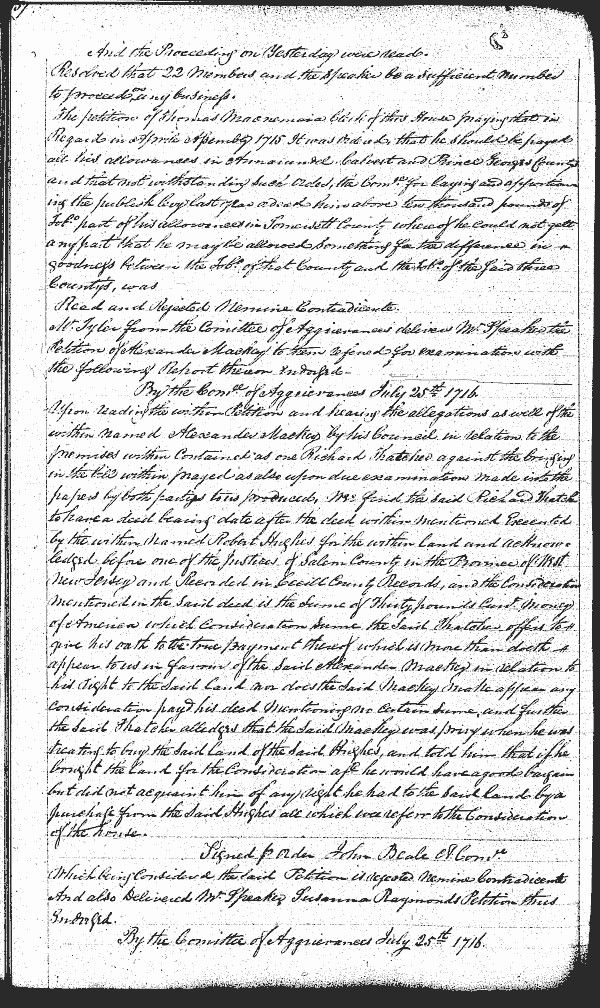 63
And the Proceeding on Yesterday were read.
Resolved that 22 Members and the Speaker be a sufficient number
to proceed on any business.
The petition of Thomas Macnemara Clerk of this House praying that in
Regard in Aprile Assembly 1715 It was ordered that he should be payed
all his allowances in Annarundel Calvert and Prince Georges County
and that notwithstanding such order, the Comee. for laying and apportion
ing the publick levy last year ordered him above ten thousand pounds of
Tobo. part of his allowances in Somersett County where he could not gett
any part that he may be allowed something for the difference in
goodness between the Tobo. of that County and the Tobo. of the said three
Countys, was
Read and Rejected Nemine Contradicente.
Mr. Tyler from the Comittee of Aggrievances delivers Mr. Speaker the
Petition of Alexander Mackey to them refered for examination with
the following Report thereon Endorsed.
By the Comee. of Aggrievances July 25th 1716
Upon reading the within Petition and hearing the allegations as well of the
within named Alexander Mackey by his Council in relation to the
premises within Contained as one Richard Thatcher against the bringing
in the bill within prayed as also upon due examination made into the
papers by both partys to us produced, We find the said Richard Thatch
to have a deed bearing date after the deed within mentioned Executed
by the within named Robert Hughes for the within land and acknow=
ledged before one of the Justices of Salem County in the Province of West
New Jersey and Recorded in Cecill County Records, and the Consideration
mentioned in the said deed is the sume of Thirty pounds Curt. Money
of America which Consideration sume the said Thatcher offers to
give his oath to the true payment thereof which is more than doth
appear to us in favour of the said Alexander Mackey in relation to
his right to the said land nor does the said Mackey make appear any
Consideration payd his deed Mentioning no Certain sume, and further
the said Thatcher alledges that the said Mackey was privy when he was
treating to buy the said land of the said Hughes, and told him that if he
bought the land for the Consideration afd. he would have a good bargain
but did not acquaint him of any right he had to the said land by a
purchase from the said Hughes all which we referr to the Consideration
of the house.
Signed p order John Beale Cl Comee.
Which being Considered the said Petition is rejected Nemine Contradicente
And also Delivered Mr. Speaker Susanna Raymonds Petition thus
Endorsed.
By the Comittee of Aggrievances July 25th 1716.